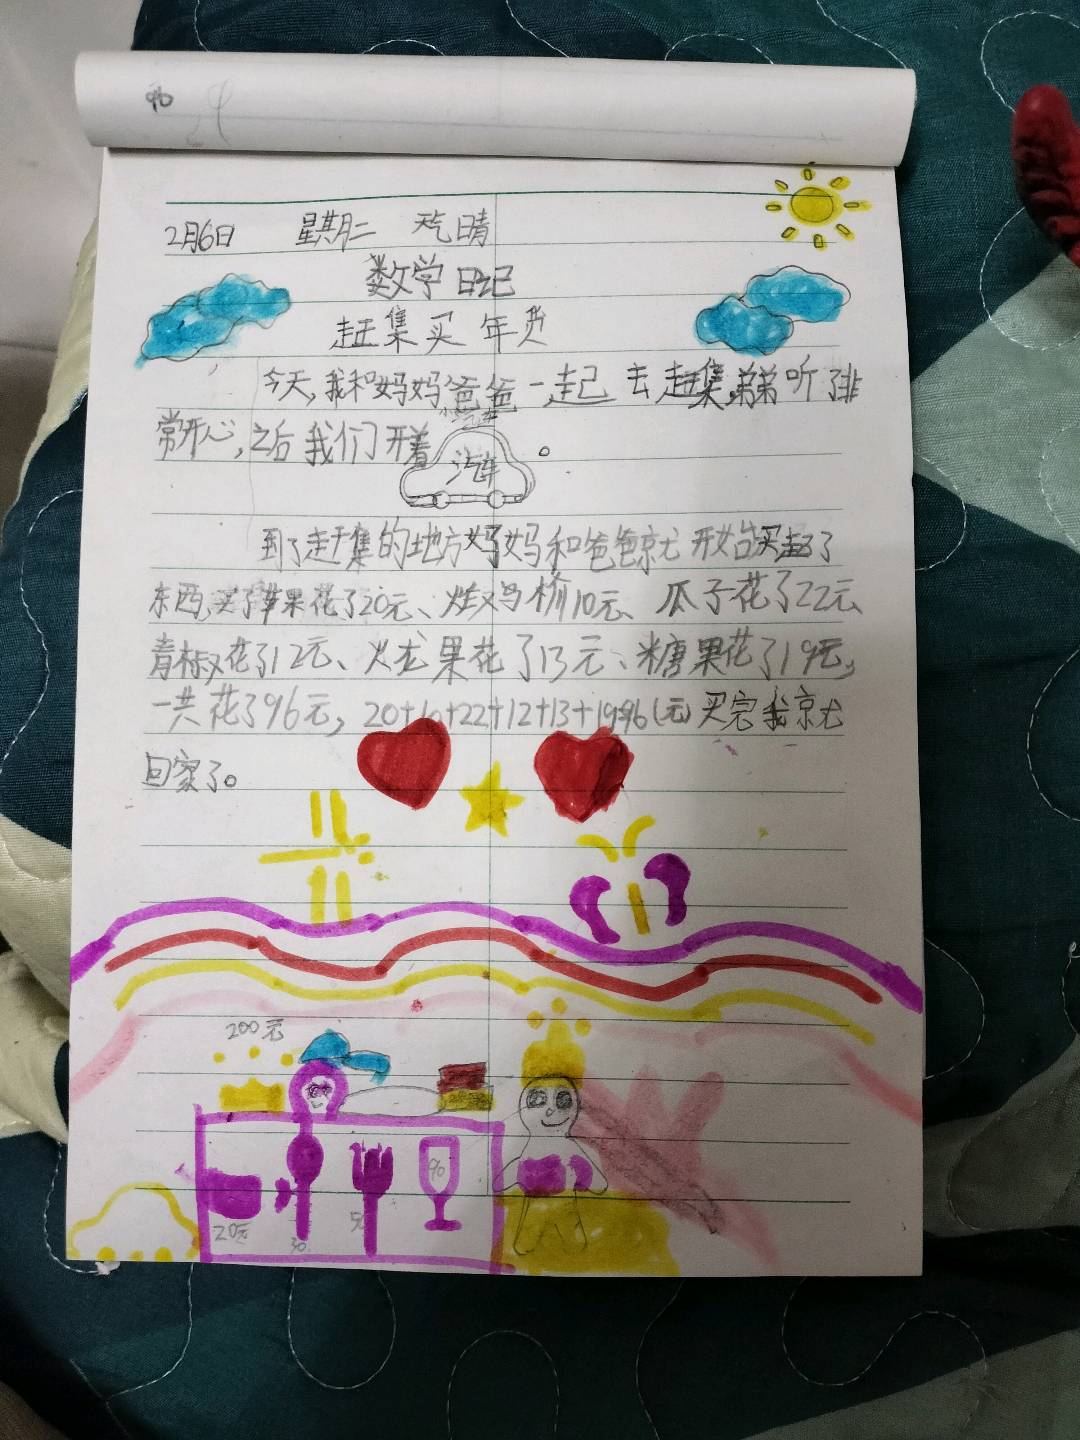 96
2月6日 星期二 天气晴
数学日记
赶集买年货
今天,我和妈妈爸爸一起去赶集,弟弟听了非
常开心,之后我们开着汽车。
到了赶集的地方妈妈和爸爸就开始买起了
东西,买了苹果花了20元、炸鸡价10元、瓜子花了22元、
青椒花了12元、火龙果花了13元、糖果花了19元,
一共花了96元,20+10+22+12+13+19=96(元)买完我就
回家了。
200元
90
20元
30
50